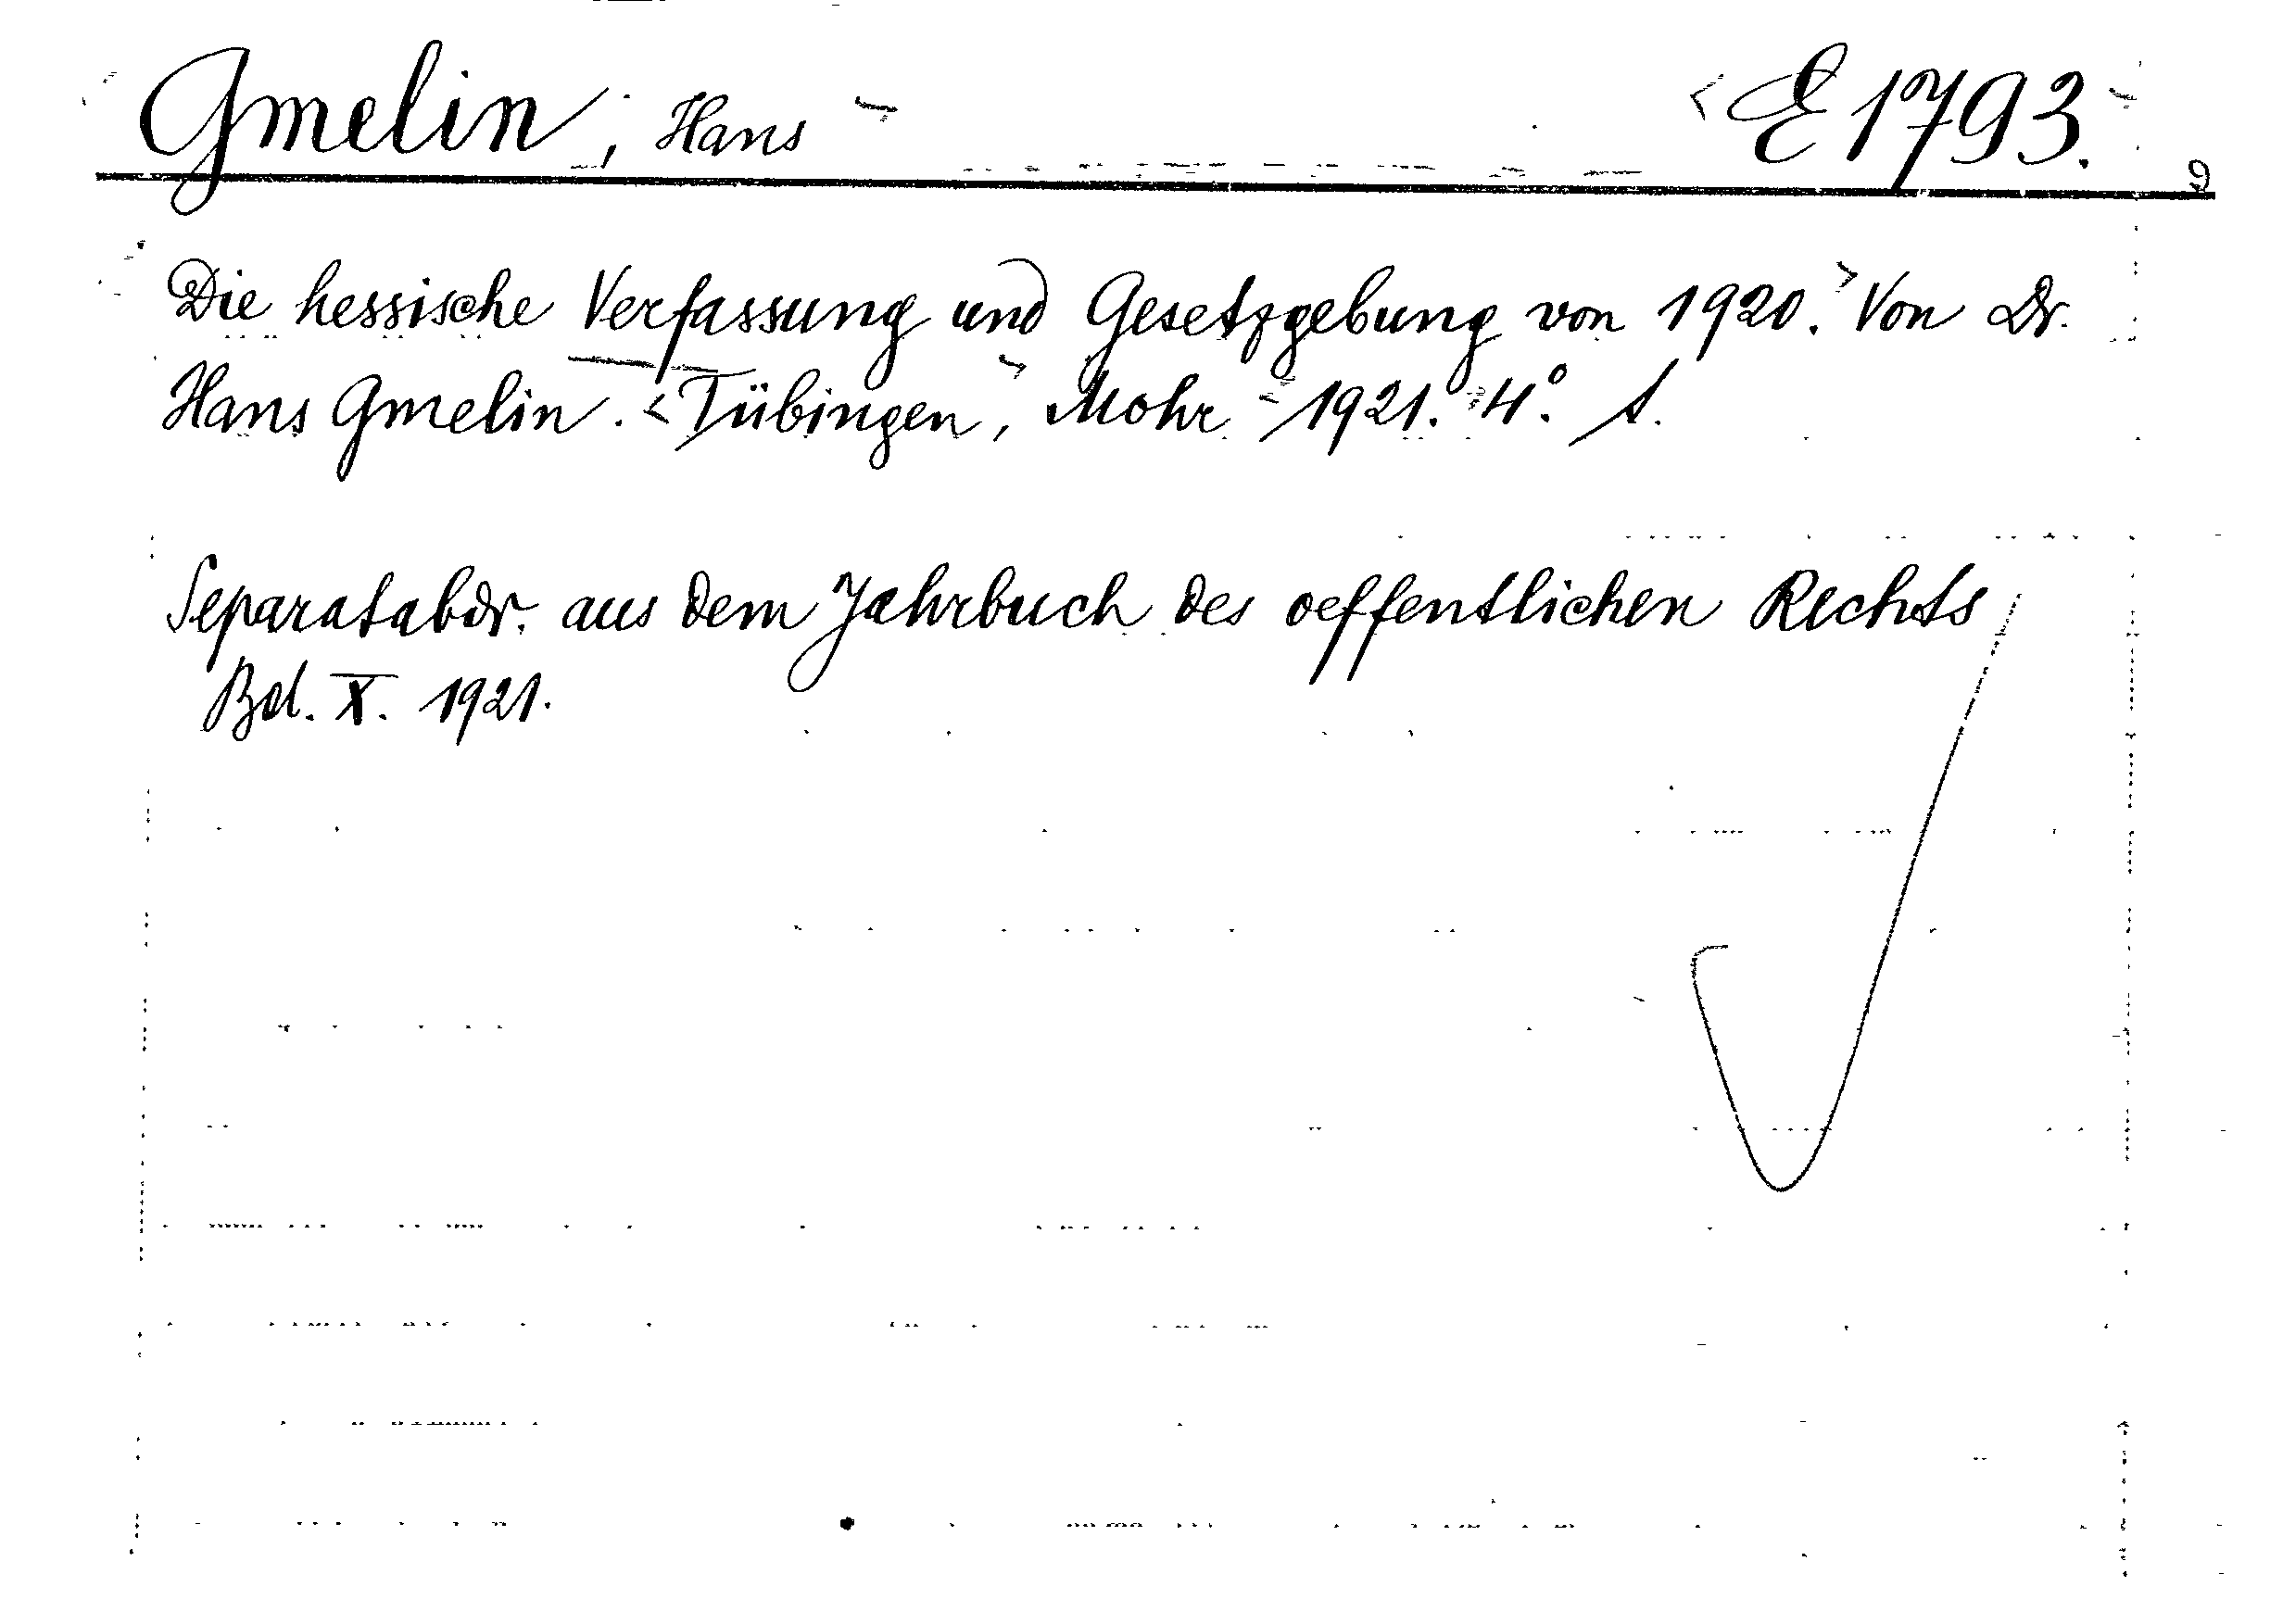 Gmelin, Hans E 1793.
Die hessische Verfassung und Gesetzgebung von 1920. Von Dr.
Hans Gmelin. Tübingen, Mohr 1921. 4°.
Separatabdr. aus dem Jahrbuch des oeffentlichen Rechts
Bd. X. 1921.